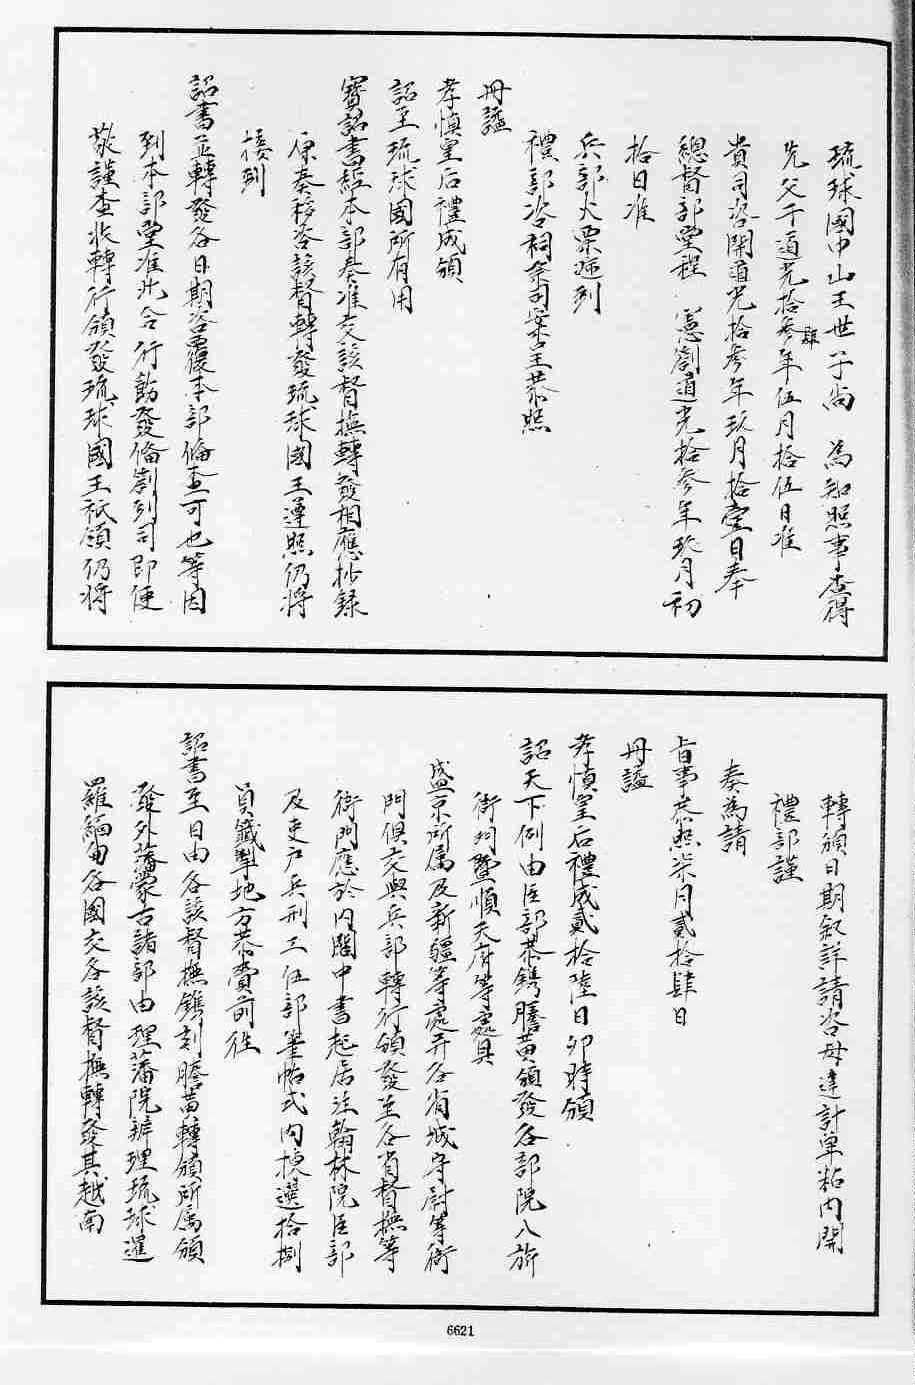 琉球國中山王世子尚　為知照事查得
先父王道光拾叁年伍月拾伍日准
貴司咨開道光拾叁年玖月拾壹日奉
總督部堂程　憲劄道光拾叁年玖月初
拾日准
兵部火票逓到
禮部咨祠祭司案呈恭照
冊諡
孝慎皇后禮成頒
詔至琉球國所有用
寶詔書經本部奏准交該督撫轉發相應抄錄
原奏移咨該督轉發琉球國王遵照仍將
接到
詔書並轉發各日期咨覆本部偹查可也等因
到本部堂准此合行飭發偹劄到司即便
敬謹查收轉行頒發琉球國王祇領仍將
轉頒日期叙詳請咨毋違計單粘內開
禮部謹
奏為請
旨事恭照柒月貳拾肆日
冊諡
孝慎皇后禮成貳拾陸日卯時頒
詔天下例由臣部恭鐫謄黃頒發各部院八旂
衙門暨順天府等處其
盛京所屬及新疆等處并各省城守尉等衙
門俱交與兵部轉行頒發至各省督撫等
衙門應於內閣中書起居注翰林院臣部
及吏户兵刑工伍部筆帖式內揀選拾捌
員籤掣地方恭賫前往
詔書至日由各該督撫鐫刻謄黃轉頒所屬頒
發外藩蒙古諸部由理藩院辦理琉球暹
羅緬甸各國交各該督撫轉發其越南
6621